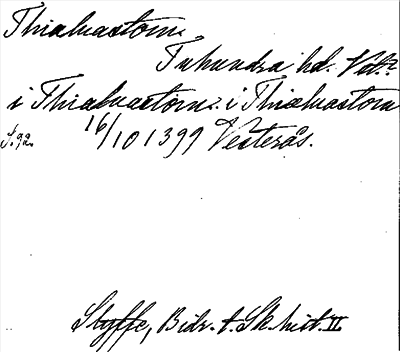 Thialuastom
Tuhundra hd. Vstm.
i Thialuastom. i Thiæluastom
S. 92. 16/10 1399 Vesterås.
Styffe, Bidr. t. Sk. hist. II